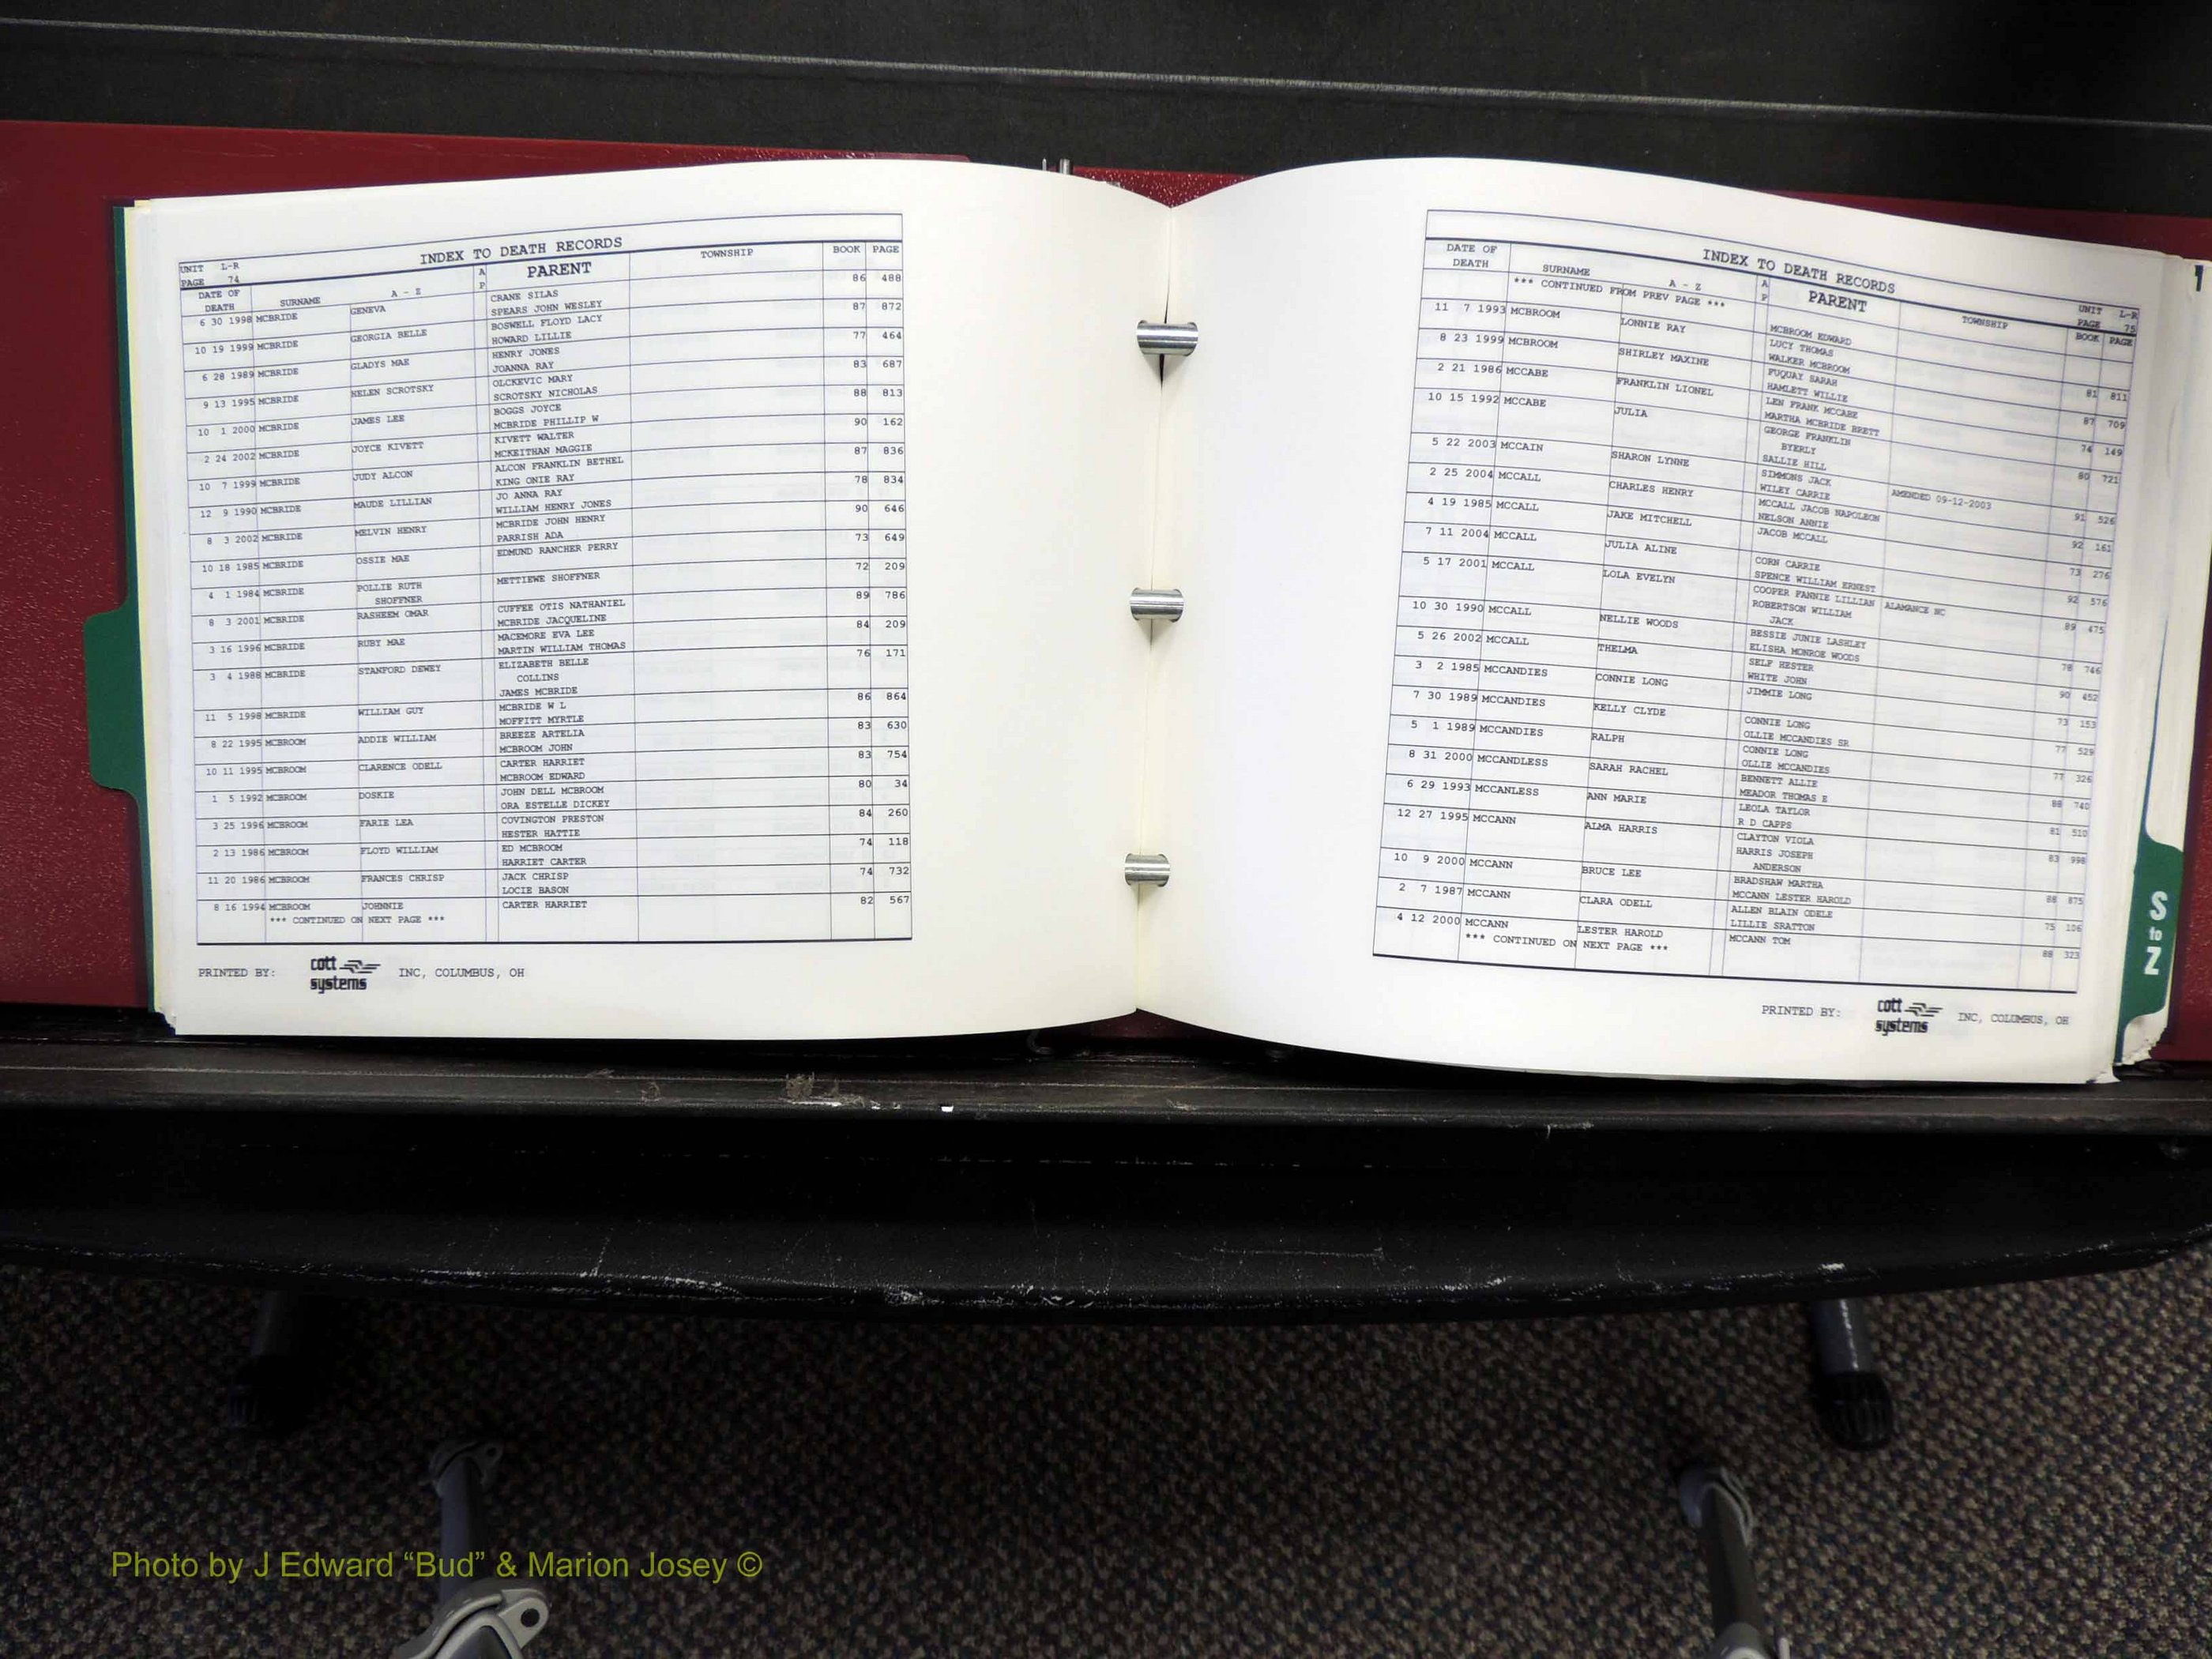 INDEX TO DEATH RECORDS
UNIT L-R
PAGE 74
DATE OF DEATH SURNAME A - Z A P PARENT TOWNSHIP BOOK PAGE
6 30 1998 MCBRIDE GENEVA CRANE SILAS 86 488
SPEARS JOHN WESLEY
10 19 1999 MCBRIDE GEORGIA BELLE BOSWELL FLOYD LACY 87 872
HOWARD LILLIE
6 28 1989 MCBRIDE GLADYS MAE HENRY JONES 77 464
JOANNA RAY
9 13 1995 MCBRIDE HELEN SCROTSKY OLCKEVIC MARY 83 687
SCROTSKY NICHOLAS
10 1 2000 MCBRIDE JAMES LEE BOGGS JOYCE 88 813
MCBRIDE PHILLIP W
2 24 2002 MCBRIDE JOYCE KIVETT KIVETT WALTER 90 162
MCKEITHAN MAGGIE
10 7 1999 MCBRIDE JUDY ALCON ALCON FRANKLIN BETHEL 87 836
KING ONIE RAY
12 9 1990 MCBRIDE MAUDE LILLIAN JO ANNA RAY 78 834
WILLIAM HENRY JONES
8 3 2002 MCBRIDE MELVIN HENRY MCBRIDE JOHN HENRY 90 646
PARRISH ADA
10 18 1985 MCBRIDE OSSIE MAE EDMUND RANCHER PERRY 73 649
4 1 1984 MCBRIDE POLLIE RUTH METTIEWE SHOFFNER 72 209
SHOFFNER
8 3 2001 MCBRIDE RASHEEM OMAR CUFFEE OTIS NATHANIEL 89 786
MCBRIDE JACQUELINE
3 16 1996 MCBRIDE RUBY MAE MACEMORE EVA LEE 84 209
MARTIN WILLIAM THOMAS
3 4 1988 MCBRIDE STANFORD DEWEY ELIZABETH BELLE 76 171
COLLINS
JAMES MCBRIDE
11 5 1998 MCBRIDE WILLIAM GUY MCBRIDE W L 86 864
MOFFITT MYRTLE
8 22 1995 MCBROOM ADDIE WILLIAM BREEZE ARTELIA 83 630
MCBROOM JOHN
10 11 1995 MCBROOM CLARENCE ODELL CARTER HARRIET 83 754
MCBROOM EDWARD
1 5 1992 MCBROOM DOSKIE JOHN DELL MCBROOM 80 34
ORA ESTELLE DICKEY
3 25 1996 MCBROOM FARIE LEA COVINGTON PRESTON 84 260
HESTER HATTIE
2 13 1986 MCBROOM FLOYD WILLIAM ED MCBROOM 74 118
HARRIET CARTER
11 20 1986 MCBROOM FRANCES CHRISP JACK CHRISP 74 732
LOCIE BASON
8 16 1994 MCBROOM JOHNNIE CARTER HARRIET 82 567
*** CONTINUED ON NEXT PAGE ***
PRINTED BY: cott systems INC, COLUMBUS, OH
INDEX TO DEATH RECORDS
UNIT L-R
PAGE 75
DATE OF DEATH SURNAME A - Z A P PARENT TOWNSHIP BOOK PAGE
*** CONTINUED FROM PREV PAGE ***
MCBROOM EDWARD
11 7 1993 MCBROOM LONNIE RAY LUCY THOMAS 81 811
WALKER MCBROOM
8 23 1999 MCBROOM SHIRLEY MAXINE FUQUAY SARAH 87 709
HAMLETT WILLIE
2 21 1986 MCCABE FRANKLIN LIONEL LEN FRANK MCCABE 74 149
MARTHA MCBRIDE BRETT
10 15 1992 MCCABE JULIA GEORGE FRANKLIN 80 721
BYERLY
SALLIE HILL
5 22 2003 MCCAIN SHARON LYNNE SIMMONS JACK AMENDED 09-12-2003 91 526
WILEY CARRIE
2 25 2004 MCCALL CHARLES HENRY MCCALL JACOB NAPOLEON 92 161
NELSON ANNIE
4 19 1985 MCCALL JAKE MITCHELL JACOB MCCALL 73 276
7 11 2004 MCCALL JULIA ALINE CORN CARRIE 92 576
SPENCE WILLIAM ERNEST
5 17 2001 MCCALL LOLA EVELYN COOPER FANNIE LILLIAN ALAMANCE NC 89 475
ROBERTSON WILLIAM
JACK
10 30 1990 MCCALL NELLIE WOODS BESSIE JUNIE LASHLEY 78 746
ELISHA MONROE WOODS
5 26 2002 MCCALL THELMA SELF HESTER 90 452
WHITE JOHN
3 2 1985 MCCANDIES CONNIE LONG JIMMIE LONG 73 153
7 30 1989 MCCANDIES KELLY CLYDE CONNIE LONG 77 529
OLLIE MCCANDIES SR
5 1 1989 MCCANDIES RALPH CONNIE LONG 77 326
OLLIE MCCANDIES
8 31 2000 MCCANDLESS SARAH RACHEL BENNETT ALLIE 88 740
MEADOR THOMAS E
6 29 1993 MCCANLESS ANN MARIE LEOLA TAYLOR 81 510
R D CAPPS
12 27 1995 MCCANN ALMA HARRIS CLAYTON VIOLA 83 998
HARRIS JOSEPH
ANDERSON
10 9 2000 MCCANN BRUCE LEE BRADSHAW MARTHA 88 875
MCCANN LESTER HAROLD
2 7 1987 MCCANN CLARA ODELL ALLEN BLAIN ODELE 75 106
LILLIE SRATTON
4 12 2000 MCCANN LESTER HAROLD MCCANN TOM 88 323
*** CONTINUED ON NEXT PAGE ***
PRINTED BY: cott systems INC, COLUMBUS, OH
S
to
Z
1
Photo by J Edward “Bud” & Marion Josey ©